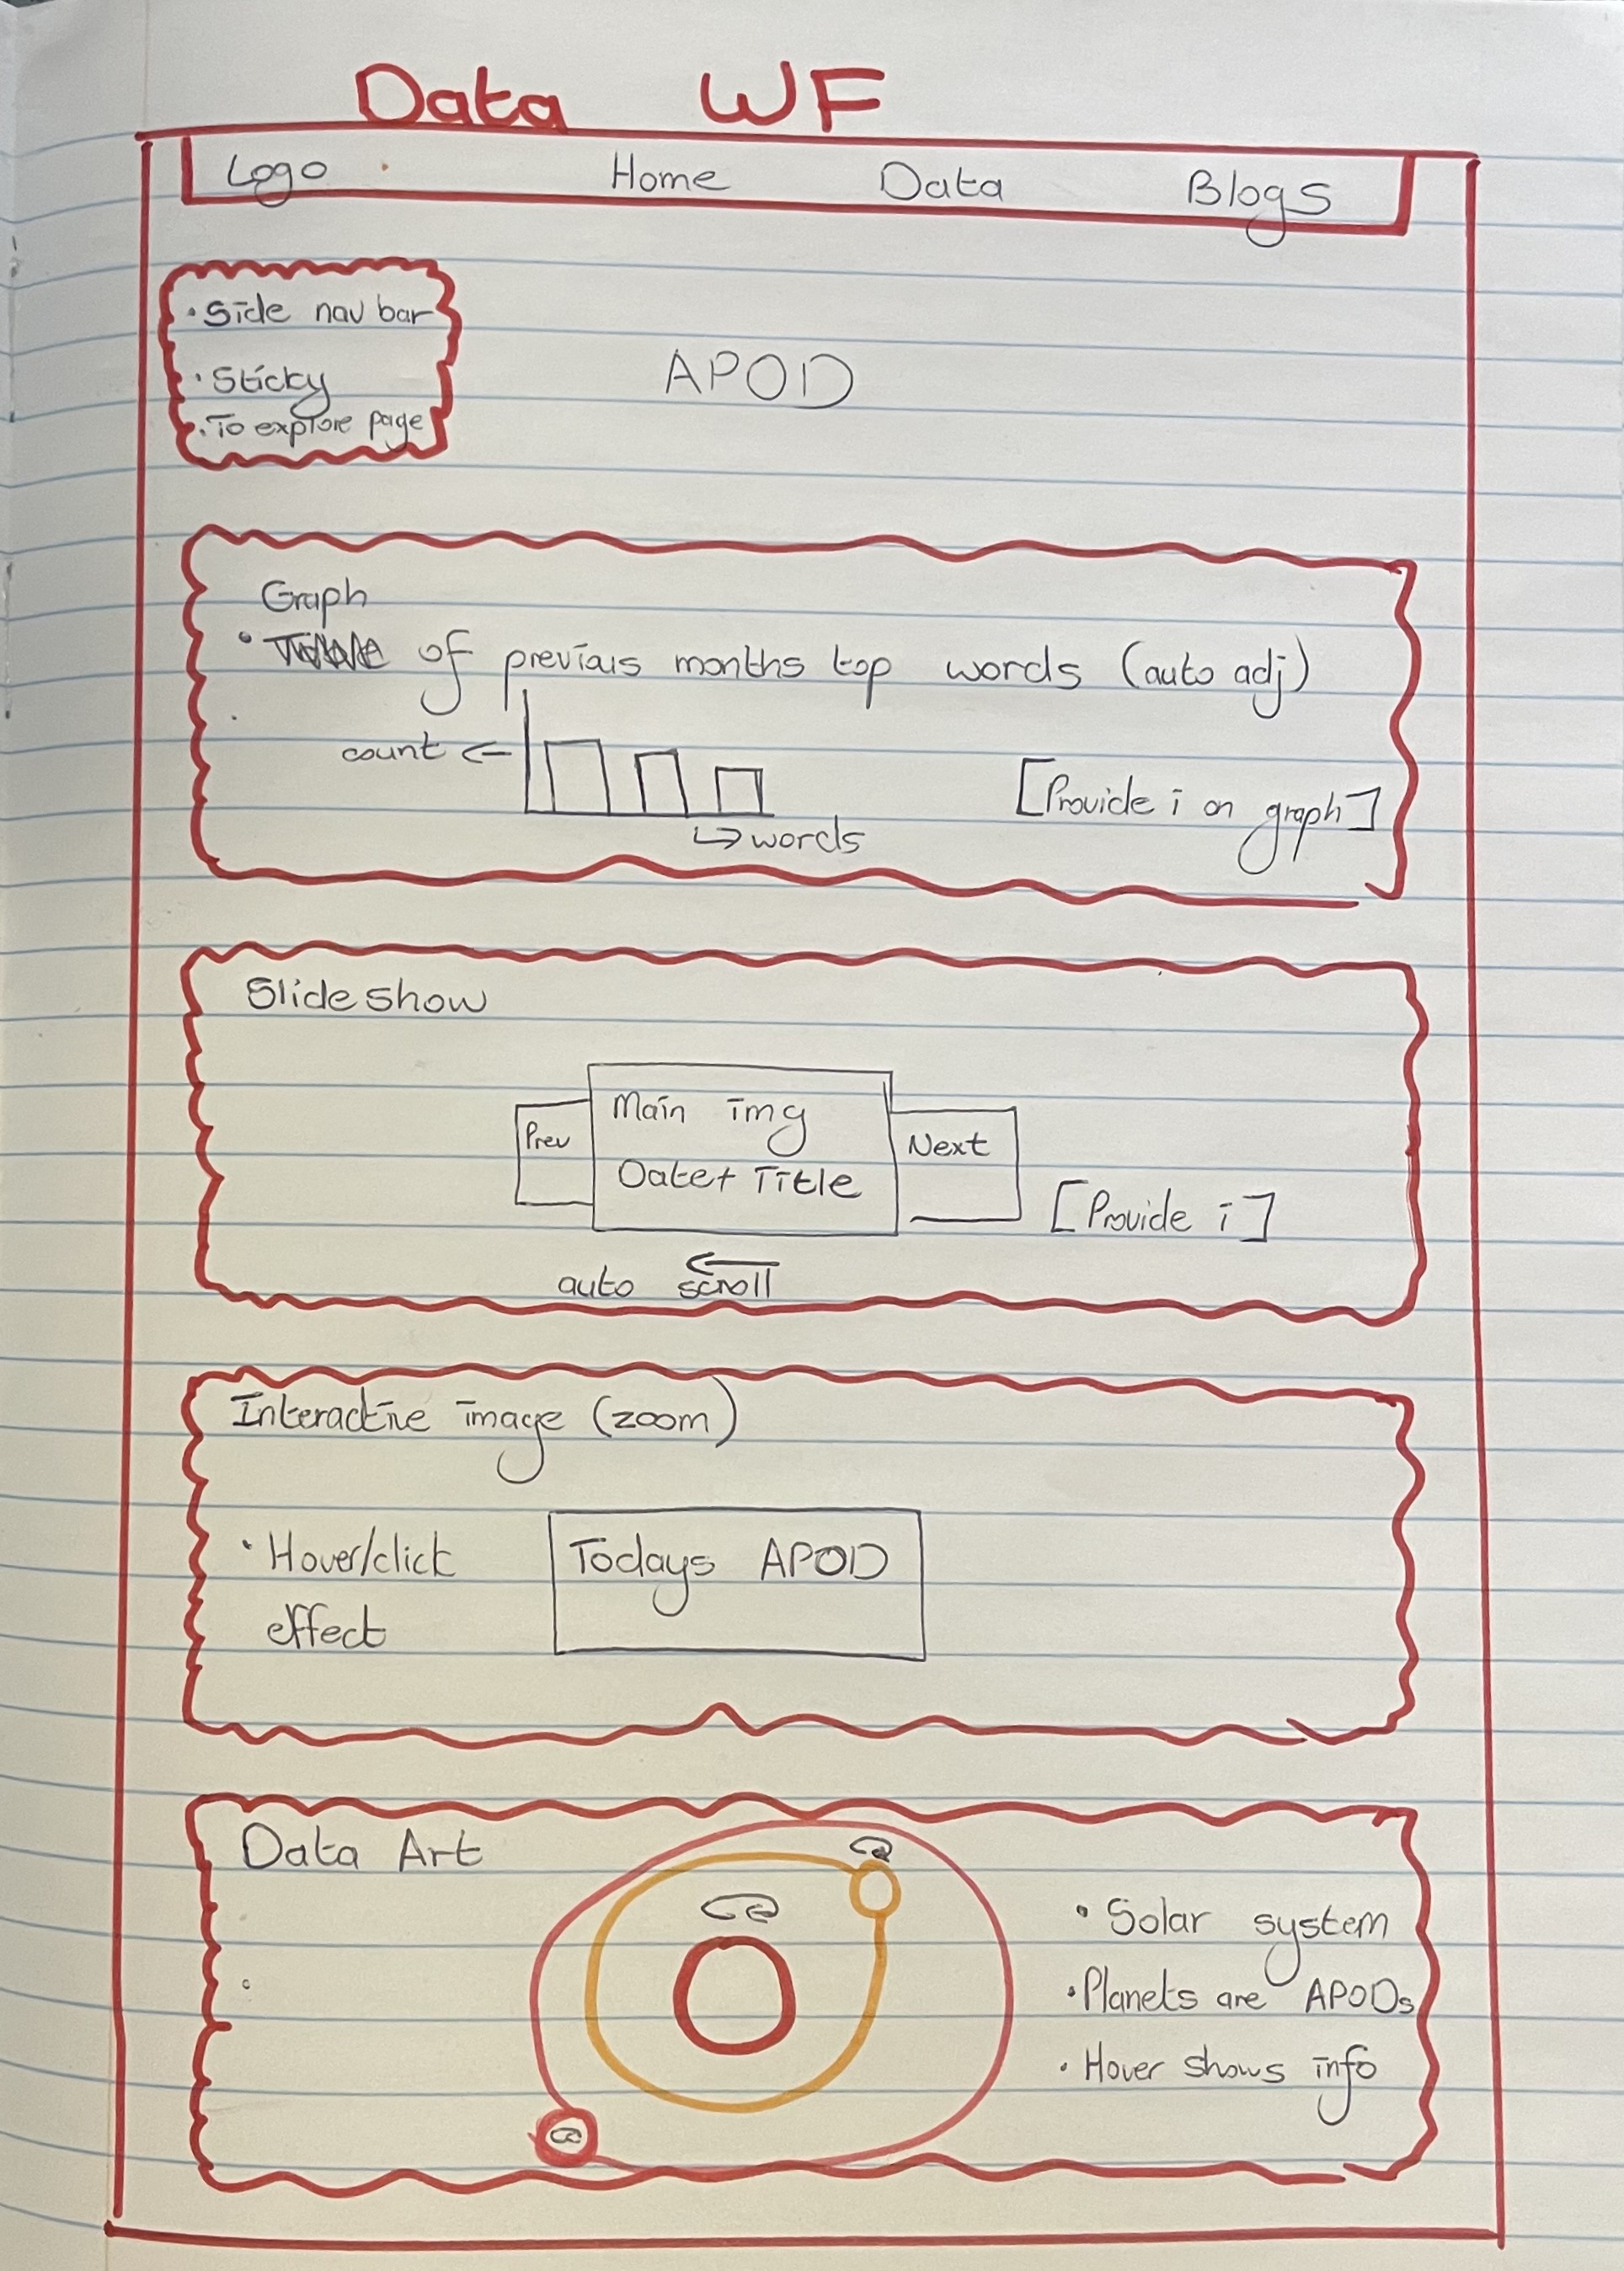 Data WF
Logo Home Data Blogs
• Side nav bar
• Sticky
• To explore page
APOD
Graph
• of previous months top words (auto adj)
count ←
↳ words
[Provide i on graph]
Slide show
Prev
Main img
Date + Title
Next
[Provide i]
auto scroll
Interactive image (zoom)
• Hover/click
effect
Todays APOD
Data Art
• Solar system
• Planets are APODs
• Hover shows info